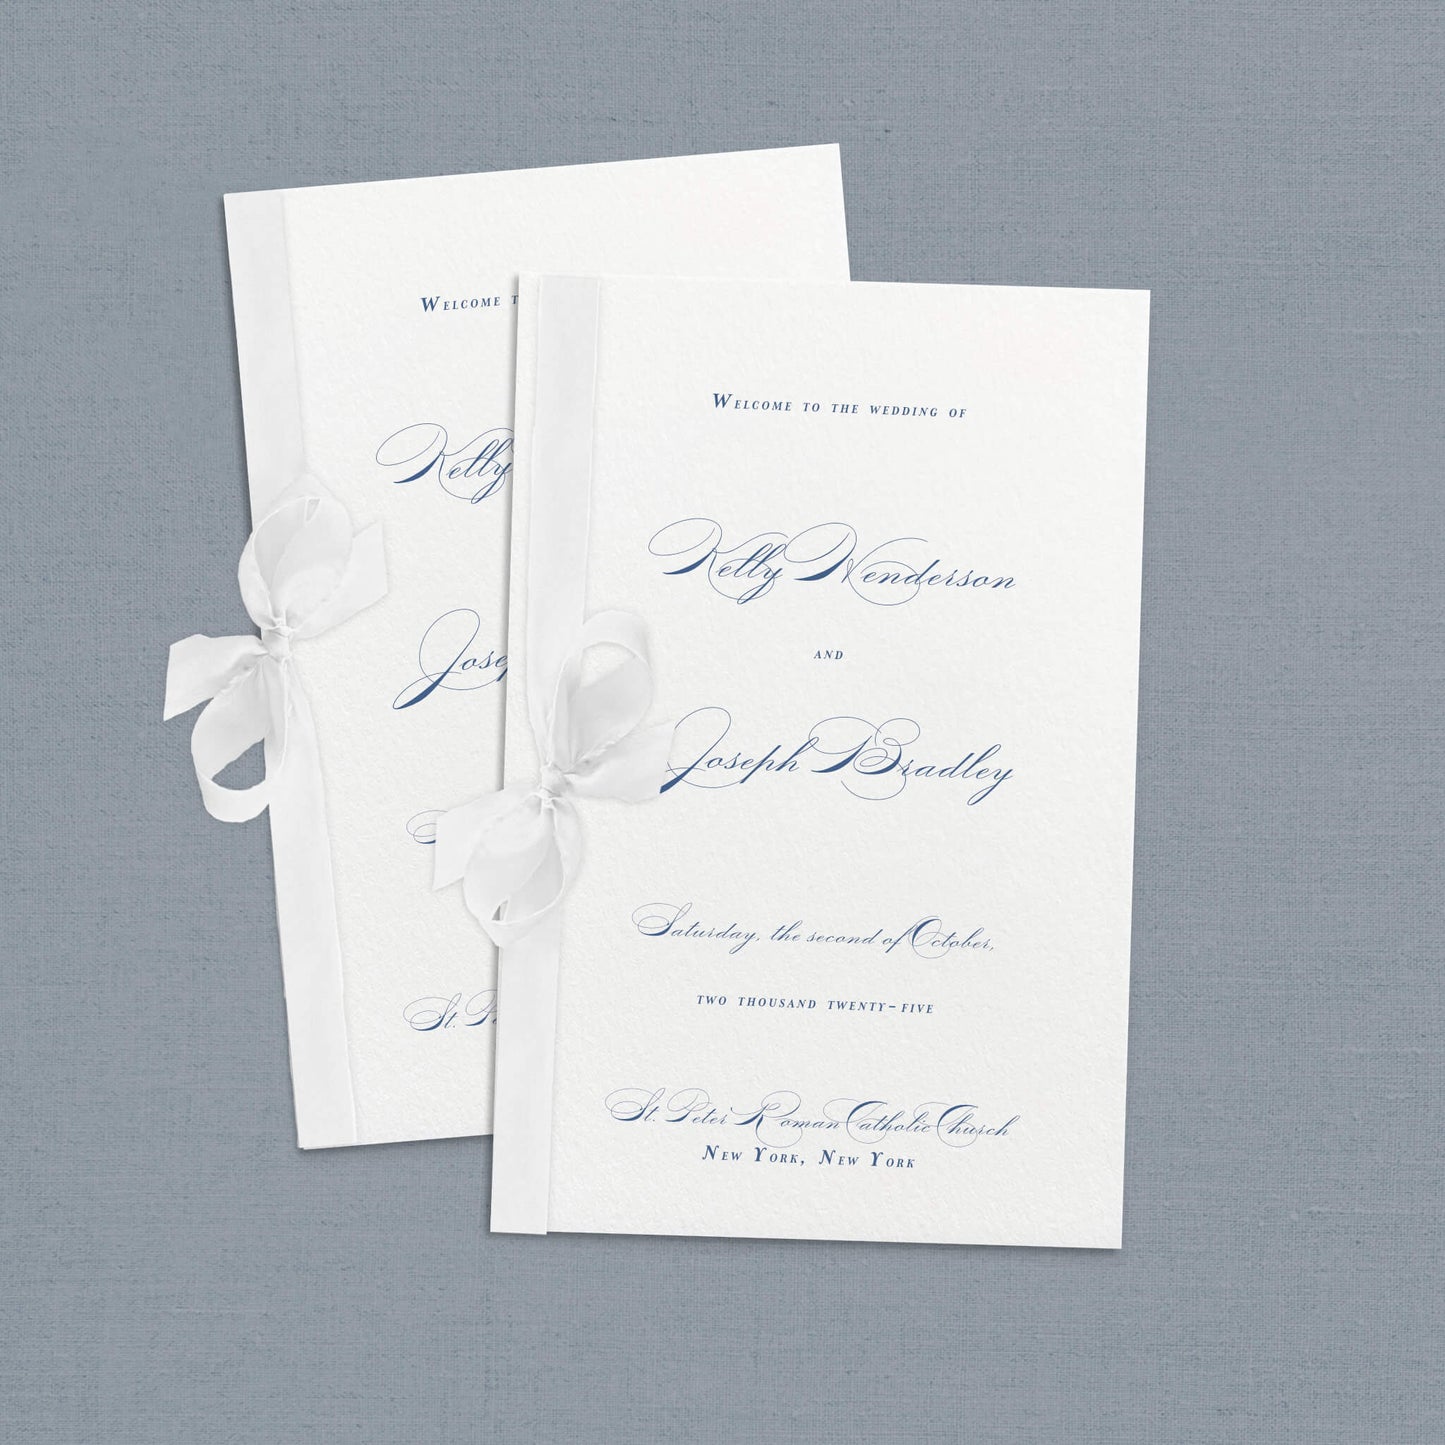 Welcome to
Kelly
Joseph
St. Pe
Welcome to the wedding of
Kelly Henderson
and
Joseph Bradley
Saturday, the second of October,
two thousand twenty-five
St. Peter Roman Catholic Church
New York, New York